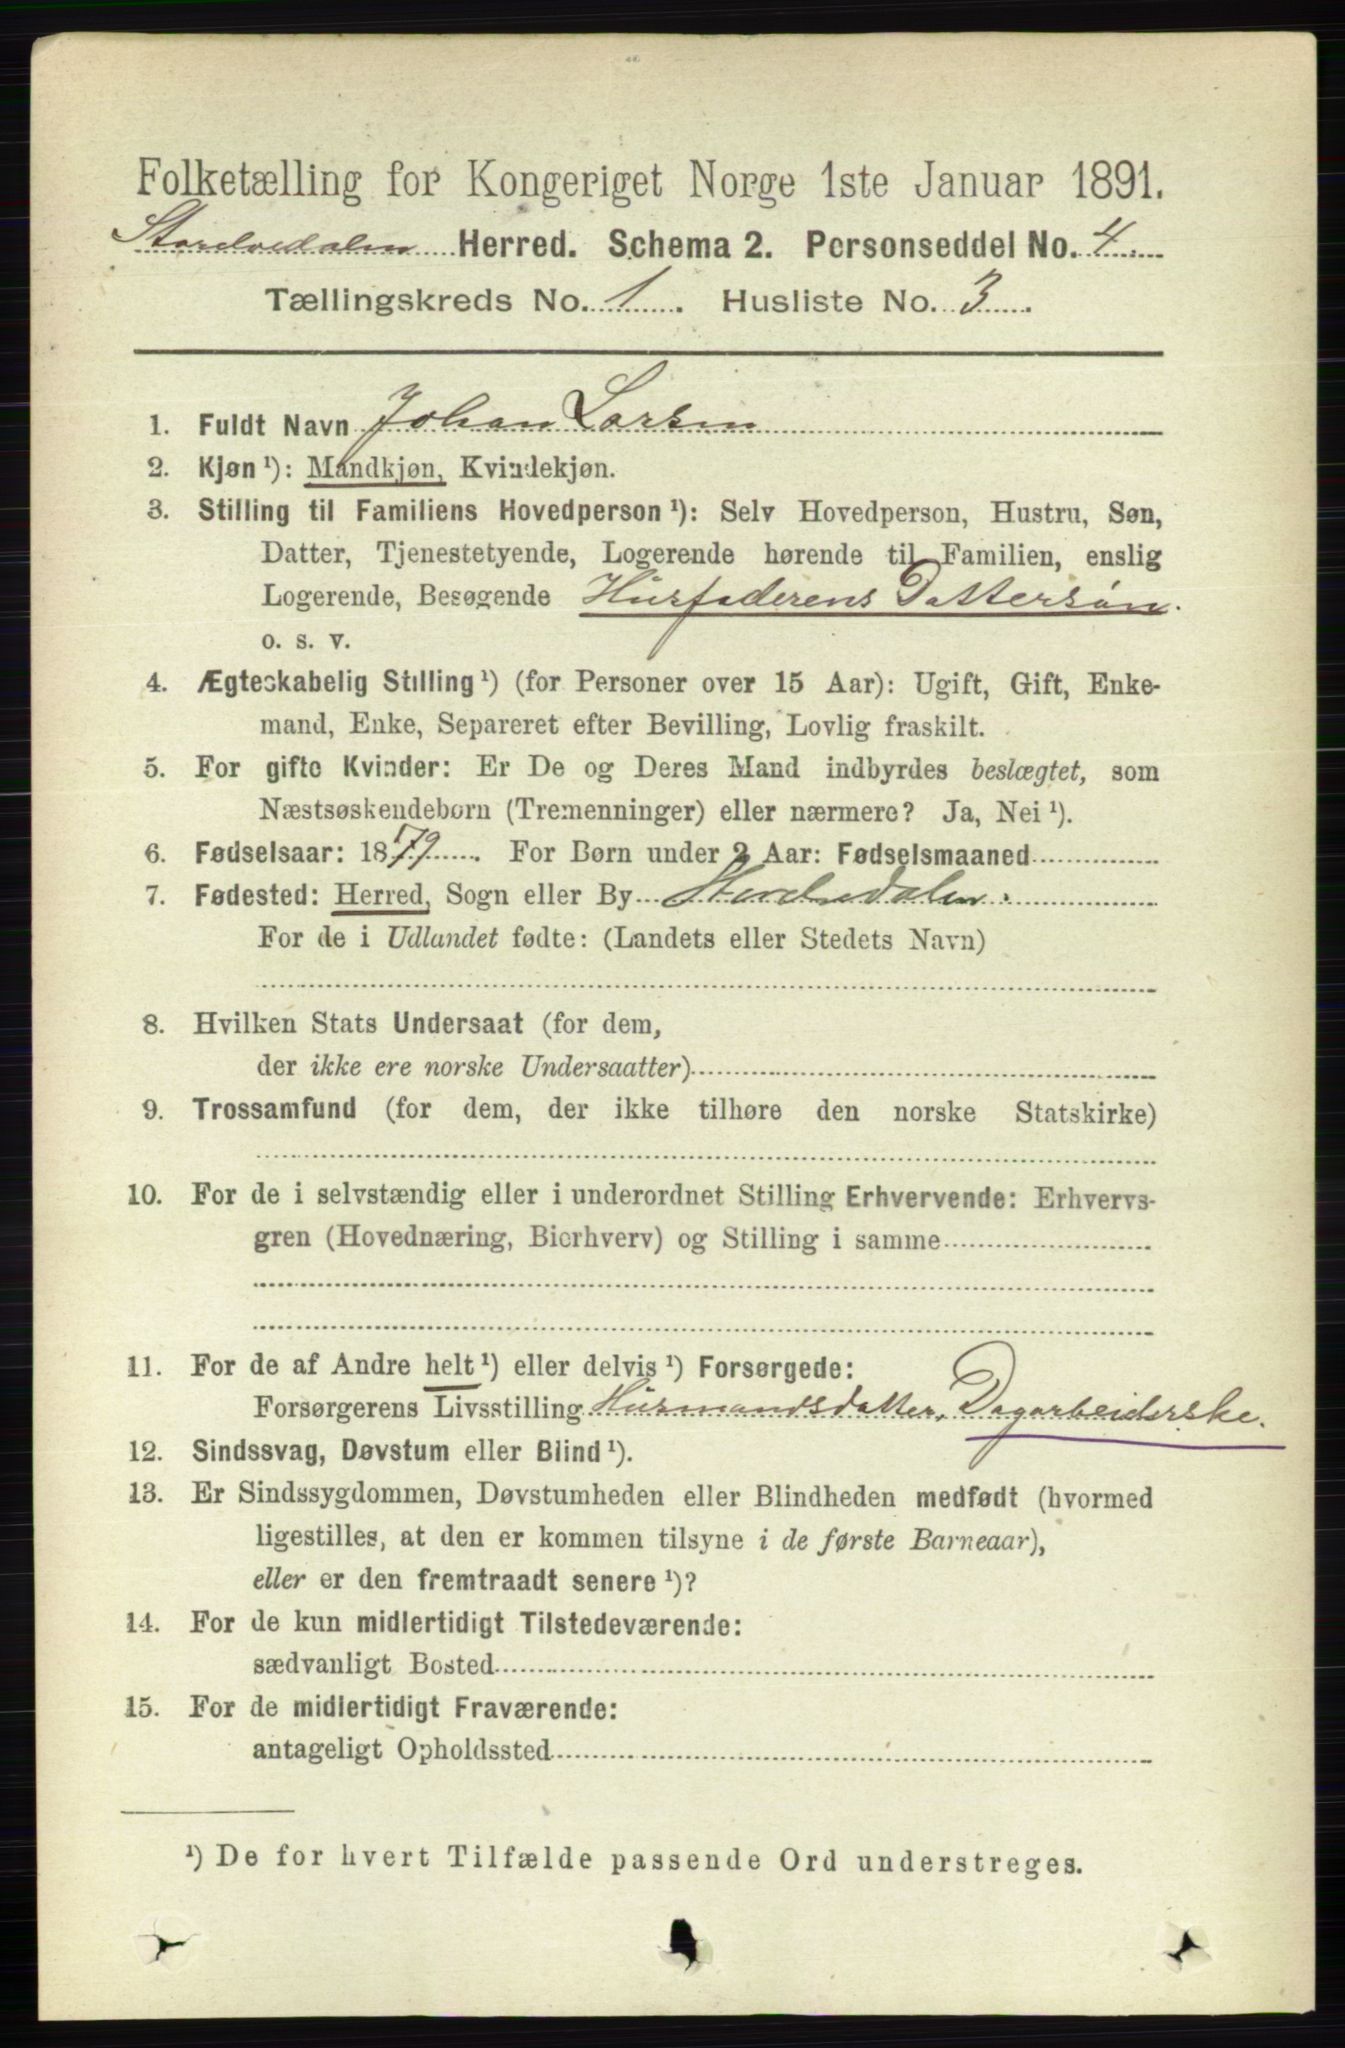 Folketælling for Kongeriget Norge 1ste Januar 1891.
Storelvedalen Herred. Schema 2. Personseddel No. 4
Tællingskreds No. 1. Husliste No. 3.
1. Fuldt Navn Johan Larsen
2. Kjøn ¹): Mandkjøn, Kvindekjøn.
3. Stilling til Familiens Hovedperson ¹): Selv Hovedperson, Hustru, Søn,
Datter, Tjenestetyende, Logerende hørende til Familien, enslig
Logerende, Besøgende Husfaderens Dattersøn.
o. s. v.
4. Ægteskabelig Stilling ¹) (for Personer over 15 Aar): Ugift, Gift, Enke-
mand, Enke, Separeret efter Bevilling, Lovlig fraskilt.
5. For gifte Kvinder: Er De og Deres Mand indbyrdes beslægtet, som
Næstsøskendebørn (Tremenninger) eller nærmere? Ja, Nei ¹).
6. Fødselsaar: 1879. For Børn under 2 Aar: Fødselsmaaned
7. Fødested: Herred, Sogn eller By Storelvedalen.
For de i Udlandet fødte: (Landets eller Stedets Navn)
8. Hvilken Stats Undersaat (for dem,
der ikke ere norske Undersaatter)
9. Trossamfund (for dem, der ikke tilhøre den norske Statskirke)
10. For de i selvstændig eller i underordnet Stilling Erhvervende: Erhvervs-
gren (Hovednæring, Bierhverv) og Stilling i samme
11. For de af Andre helt ¹) eller delvis ¹) Forsørgede:
Forsørgerens Livsstilling Husmandsdatter, Dagarbeiderske.
12. Sindssvag, Døvstum eller Blind ¹).
13. Er Sindssygdommen, Døvstumheden eller Blindheden medfødt (hvormed
ligestilles, at den er kommen tilsyne i de første Barneaar),
eller er den fremtraadt senere ¹)?
14. For de kun midlertidigt Tilstedeværende:
sædvanligt Bosted
15. For de midlertidigt Fraværende:
antageligt Opholdssted
¹) De for hvert Tilfælde passende Ord understreges.